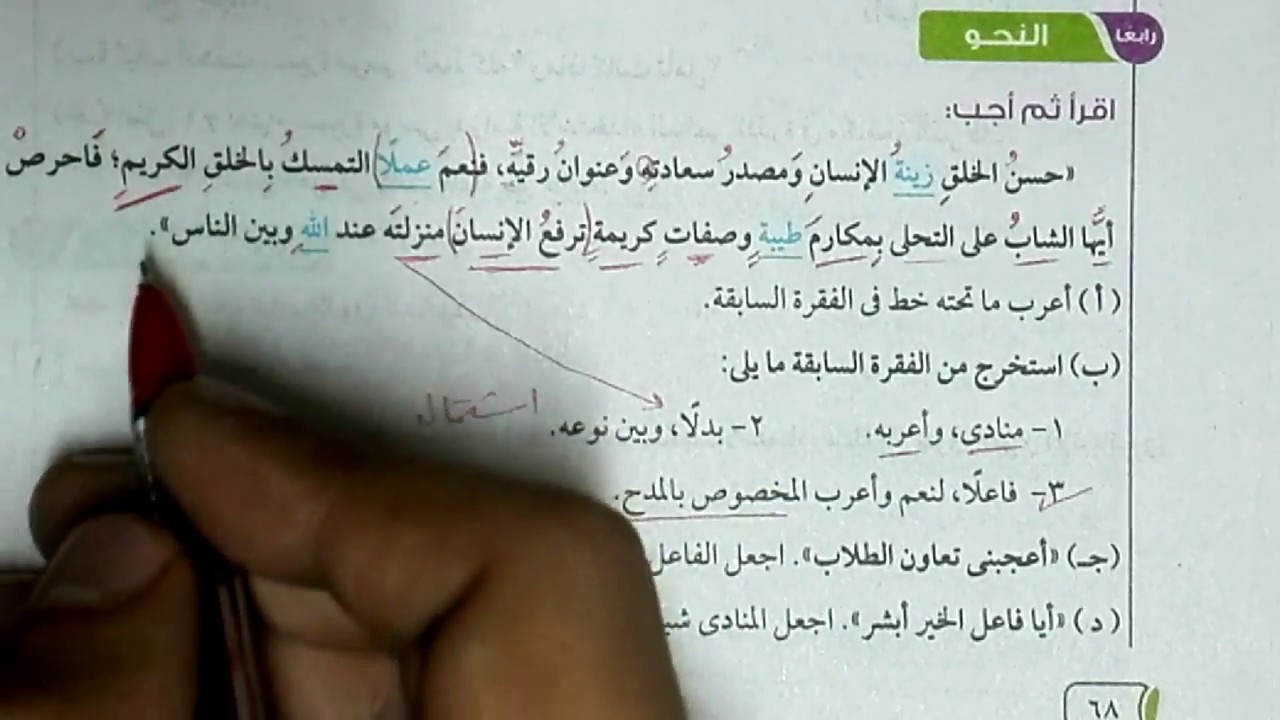 رابعًا النحو
اقرأ ثم أجب:
«حسنُ الخلقِ زينةُ الإنسانِ وَمصدرُ سعادتهِ وَعنوانُ رقيِّه، فنعمَ عملًا التمسكُ بِالخلقِ الكريمِ؛ فَاحرصْ
أيُّها الشابُ على التحلى بِمكارمَ طيبةٍ وصفاتٍ كريمةٍ ترفعُ الإنسانَ منزلتَه عند اللهِ وبين الناس».
(أ) أعرب ما تحته خط فى الفقرة السابقة.
(ب) استخرج من الفقرة السابقة ما يلى:
١- منادى، وأعربه. ٢- بدلًا، وبين نوعه. اشتمال
٣- فاعلًا، لنعم وأعرب المخصوص بالمدح.
(جـ) «أعجبنى تعاون الطلاب». اجعل الفاعل
(د) «أيا فاعل الخير أبشر». اجعل المنادى
٦٨